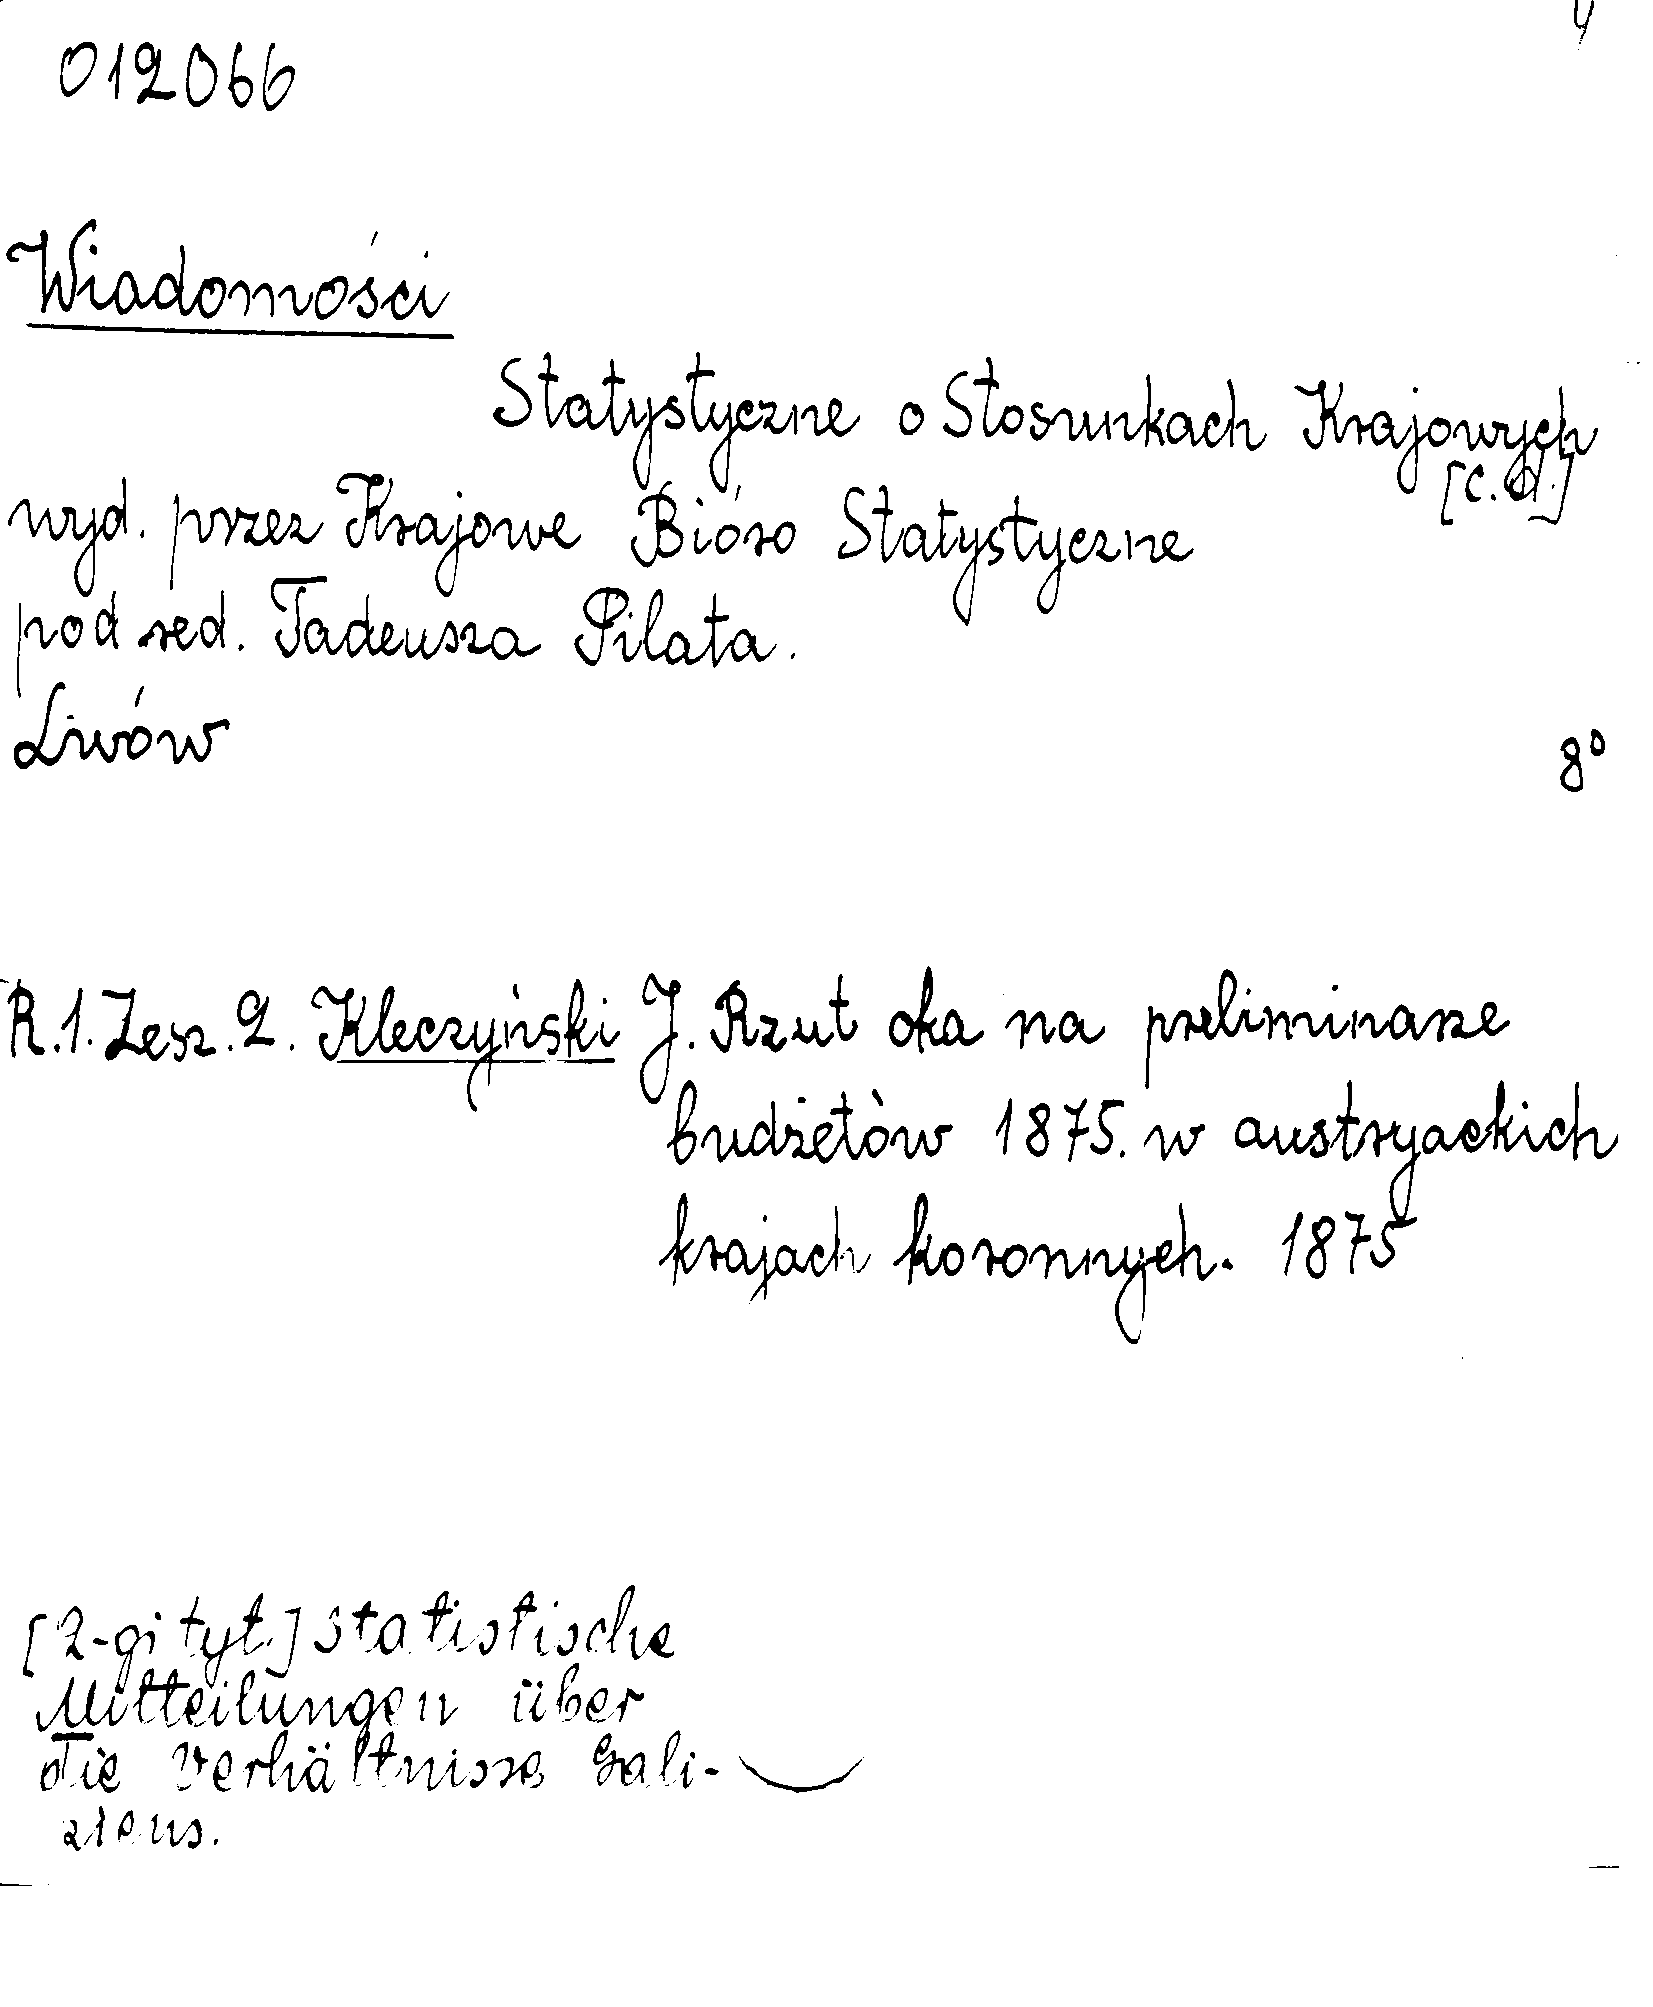 012066
Wiadomości
Statystyczne o Stosunkach Krajowych
[c.d.]
wyd. przez Krajowe Bióro Statystyczne
pod red. Tadeusza Pilata.
Lwów 8°
R.1. Zesz. 2. Kleczyński J. Rzut oka na preliminarze
budżetów 1875. w austryackich
krajach koronnych. 1875
[2-gi tyt.] Statistische
Mitteilungen über
die Verhältnisse Gali-
ziens.